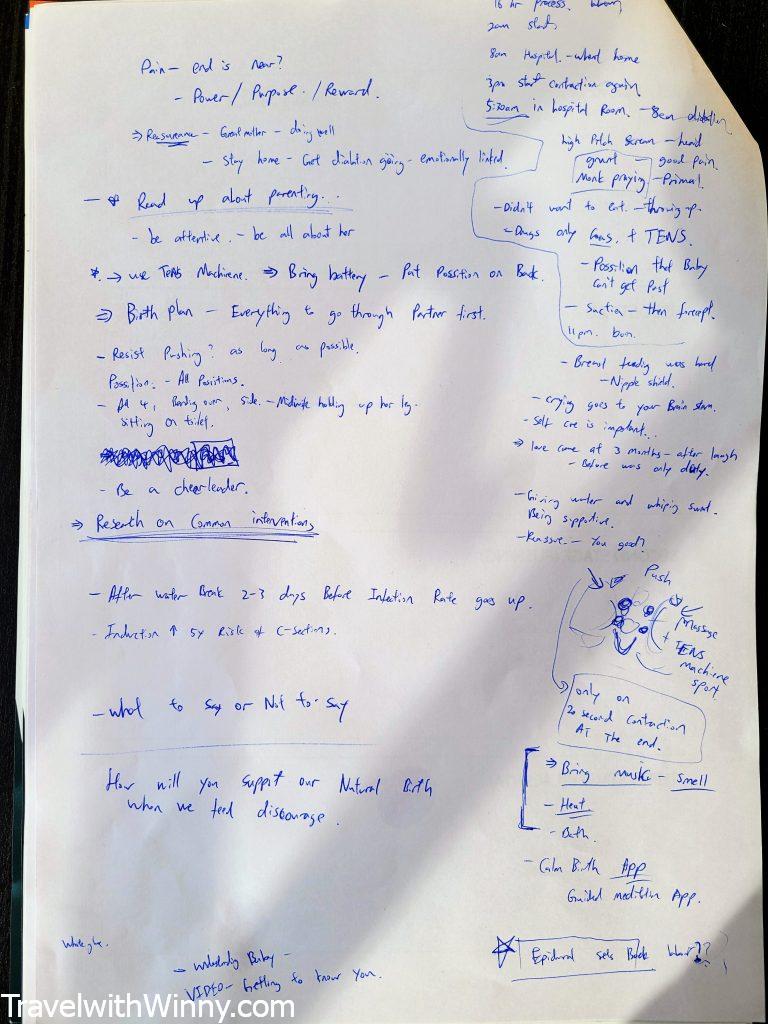 Pain - end is near?
- Power / Purpose / Reward.
⇒ Reassurance - Great mother - doing well
- Stay home - Get dialation going - emotionally linked.
- * Read up about parenting...
- be attentive. - be all about her
*. → use TENS Machiene. ⇒ Bring battery - Put Possition on Back.
⇒ Birth plan - Everything to go through Partner first.
- Resist Pushing? as long as possible.
Possition. - All Positions.
- All 4, Bending over, side. - Midwife holding up her leg.
sitting on toilet.
- Be a cheerleader.
⇒ Research on Common interventions
- After water Break 2-3 days Before Infection Rate goes up.
- Induction ↑ 5x Risk of C-sections.
- what to say or Not to say
How will you support our Natural Birth
when we feel discourage.
→ understanding Baby -
VIDEO - Getting to know you.
16 hr process.
2am start
8am Hospital. - went home
3pm start contraction again
5:30am in hospital Room. - 8cm dialation
high Pitch scream - hard
grunt - good pain.
Monk praying - Primal.
- Didn't want to eat. - throwing up.
- Drugs only Gas. + TENS.
- Possition that Baby
can't get Past
- Suction - then forcept.
11pm. born.
- Breast feeding was hard
- Nipple shield.
- crying goes to your Brain stem.
- Self care is important...
⇒ love came at 3 months - after laugh
- Before was only duty.
- Giving water and whiping sweat.
Being supportive.
- Reassure. - You good?
Push
Massage
+ TENS
machiene
spot
only on
20 second contraction
AT The end.
⇒ Bring music - smell
- Heat.
- Bath.
- Calm Birth App
Guided meditation App.
Epidural sets Back labour??
TravelwithWinny.com